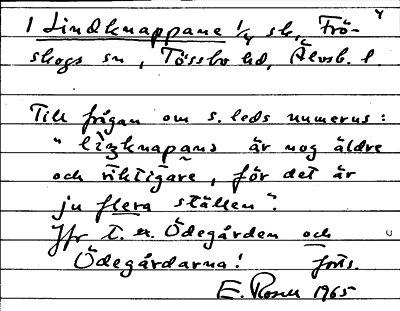 1 Lindknappane 1/4 sk., Frö-
skogs sn, Tössbo hd, Älvsb. l.
Till frågan om s. leds numerus:
"liŋknapana är nog äldre
och riktigare, för det är
ju flera ställen".
Jfr t. ex. Ödegården och
Ödegårdarna! forts.
E. Rosell 1965